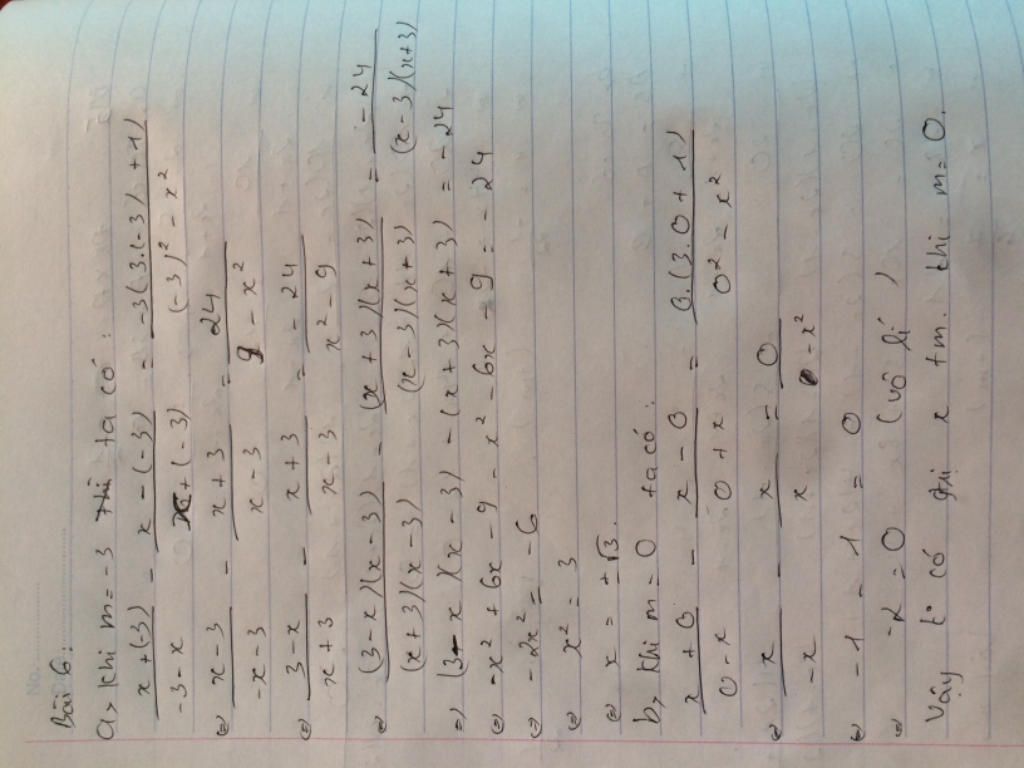 No.
Bài 6:
a, khi m = -3 thì ta có:
x+(-3)/-3-x - x-(-3)/x+(-3) = -3(3.(-3)+1)/(-3)² - x²
⇔ x-3/-x-3 - x+3/x-3 = 24/9-x²
⇔ 3-x/x+3 - x+3/x-3 = -24/x²-9
⇔ (3-x)(x-3)/(x+3)(x-3) - (x+3)(x+3)/(x-3)(x+3) = -24/(x-3)(x+3)
⇒ (3-x)(x-3) - (x+3)(x+3) = -24
⇔ -x² + 6x - 9 - x² - 6x - 9 = -24
⇔ -2x² = -6
⇔ x² = 3
⇔ x = ±√3.
b, khi m = 0 ta có:
x+0/0-x - x-0/0+x = 0.(3.0+1)/0²-x²
⇔ x/-x - x/x = 0/0-x²
⇔ -1 - 1 = 0
⇔ -2 = 0 (vô lí)
Vậy k° có gt x tm. khi m = 0.